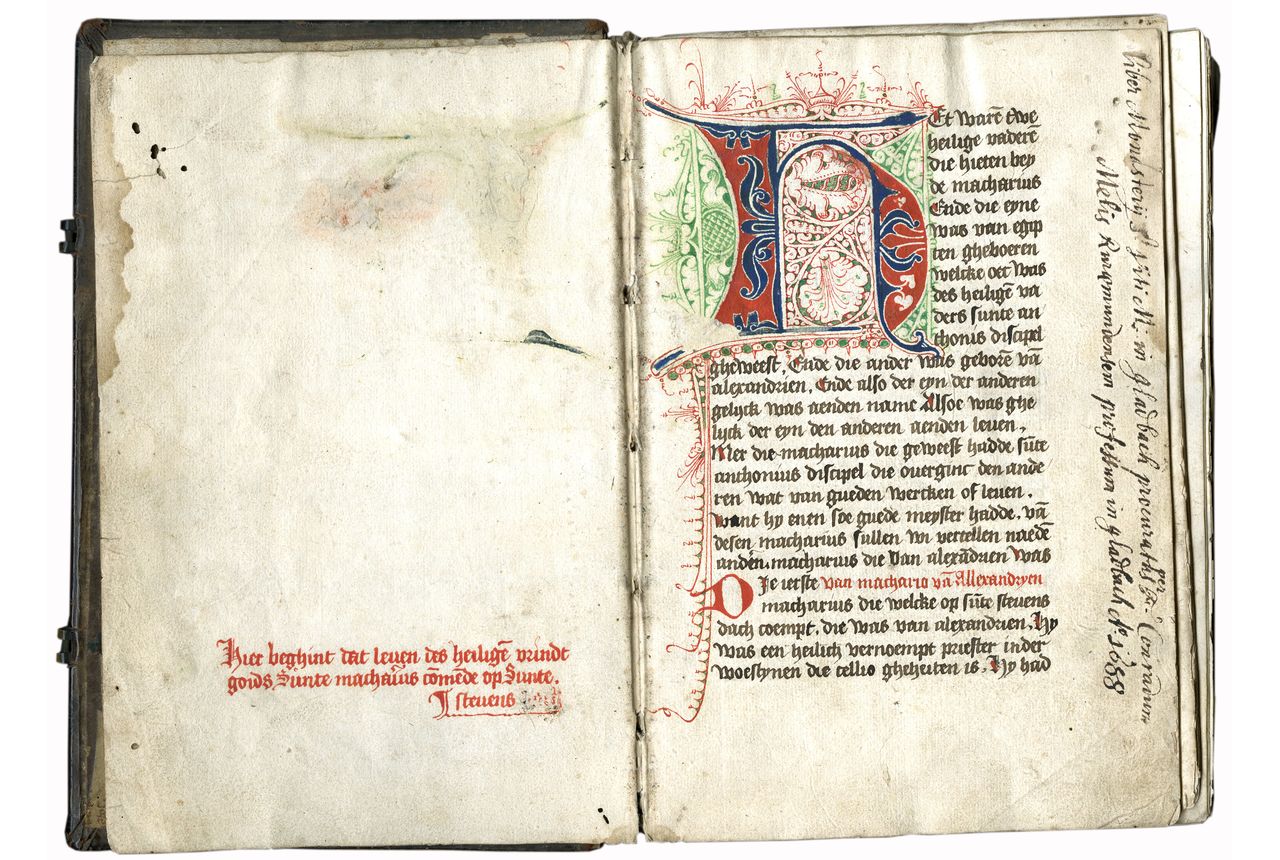 Hier beghint dat leuen des heiligē vrindt
goids Sunte macharius comēde op Sunte.
steuens
Et warē twe
heilige vaderē
die hieten bey
de macharius
Ende die eyne
was van egip
ten gheboeren
welcke oec was
des heiligē va
ders sunte an
thonis discipel
gheweest, Ende die ander was geborē vā
alexandrien, Ende also der eyn der anderen
gelyck was aenden name Alsoe was ghe
lyck der eyn den anderen aenden leuen,
Mer die macharius die geweest hadde sūte
anthonius discipel die ouerginc den ande
ren wat van gueden wercken of leuen.
want hy enen soe guede meyster hadde. vā
desen macharius sullen wi vertellen naedē
andēn. macharius die van alexādrien was
Die ierste van machario vā Allexandryen
macharius die welcke op sūte steuens
dach coempt. die was van alexandrien. Hy
was een heilich vernoempt priester inder
woestynen die cellio gheheiten is. Hy had
Liber Monasterij S. Viti M. in gladbach procuratus per fr. Conradum
Melis Ruremundensem professum in gladbach Aº 1688